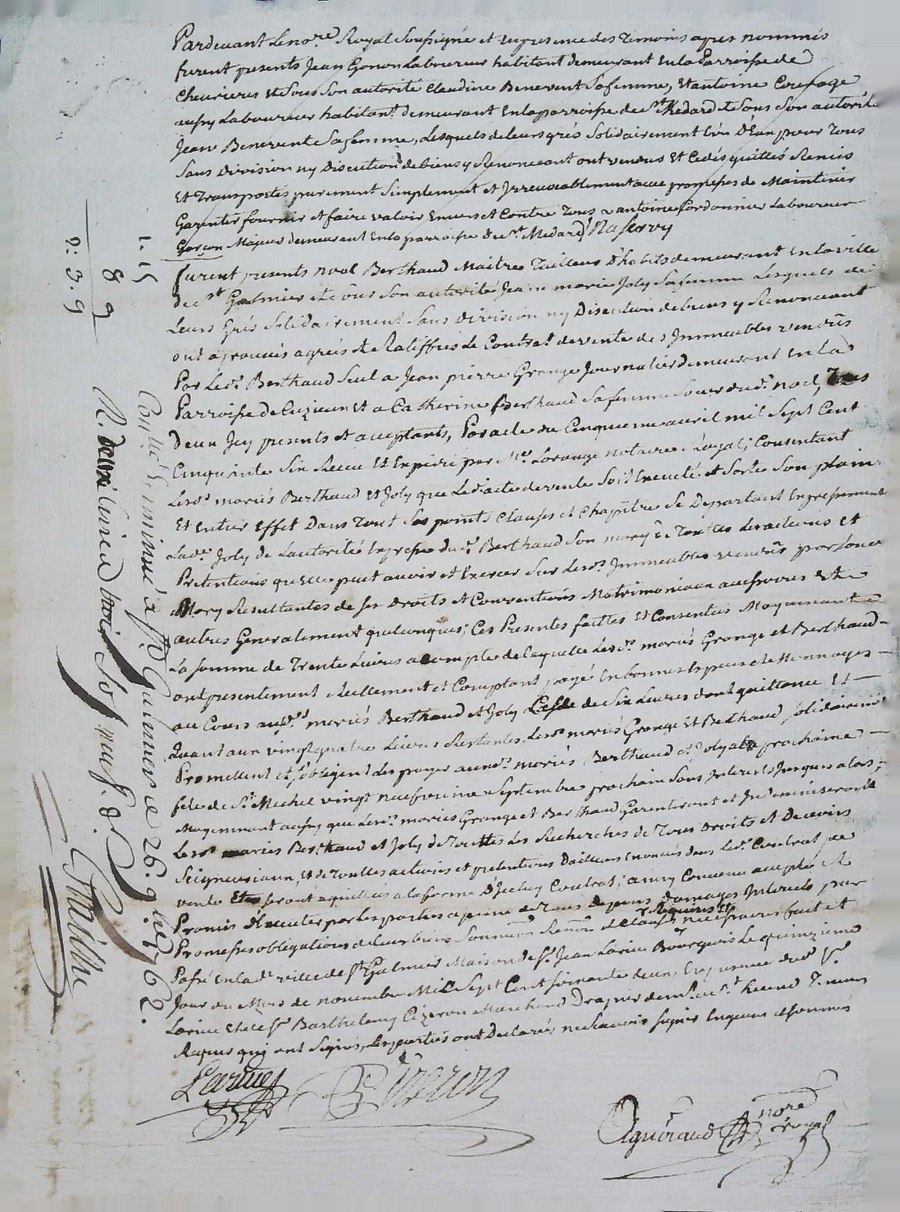 Pardevant Le nore Royal Soussigné et en presence des Temoins apres nommés
furent presents Jean Gonon Laboureur habitant demeurant En la Parroisse de
Chevrieres Et Sous Son autorité Claudine Benevent Sa femme, Et antoine
aussy Laboureur habitant demeurant En la parroisse de St Medard Et Sous Son autorité
Jean Benevent Sa femme, Lesquels de leurs grés Solidairement L'un D'Eux pour Tous
Sans Division ny Discution de biens y Renonceant ont vendus Et Cedés quittés Remis
Et Transportés purement Simplement et Irrevocablement avec promesses de Maintenir
Garentir fournir et faire valoir Envers et Contre Tous a antoine Cordonnier Laboureur
Garçon Majeur demeurant En la parroisse de St Medard
furent presents noel Berthaud Maitre Tailleur D'habits demeurant En la ville
de St Galmier et Sous Son autorité Jeane marie Joly Sa femme Lesquels de
Leurs Grés Solidairement Sans Division ny Discution de biens y Renonceant
ont aprouvés agreés Et Ratiffiés Le Contrat de vente des Immeubles vendus
Par Led. Berthaud Seul a Jean pierre Grange Journalier demeurant En la
Parroisse de Cuzieu Et a Catherine Berthaud Sa femme Soeur dud. noel, Tous
Deux Icy presents et aceptants, Par acte du Cinquieme avril mil Sept Cent
Cinquante Six Recu Et Expedié par Me Lorange notaire Royal; Consentant
Lesd. mariés Berthaud Et Joly que Led. acte de vente Soit Executé et Sorte Son plain
Et Entier Effet Dans Tout Ses points Clauses et Chapitres Se Departant Expressement
Lade. Joly de L'autorité Expresse dud. Berthaud Son mary de Toutes Les actions Et
Pretentions qu'elle peut avoir et Exercer Sur Lesd. Immeubles vendus par Son
Mary Resultantes de Ses Droits Et Conventions Matrimoniaux Et
autres Generalement quelconques; Ces Presentes faittes Et Consenties Moyennant
La Somme de Trente Livres a compte de laquelle Lesd. mariés Grange et Berthaud
ont presentement Reellement et Comptant payé En bonnes Especes de Monnoyes
au Cours auxd. mariés Berthaud et Joly Celle de Six Livres dont quittance Et
Quant aux vingt quatre Livres Restantes, Lesd. mariés Grange Et Berthaud Solidairemt
Promettent et s'obligent Les payer auxd. mariés Berthaud et Joly a la prochaine
fête de St Michel vingt neufvieme Septembre prochain Sans Interets Jusques alors;
Moyennant aussy que Lesd. mariés Grange et Berthaud Garentiront et Indemniseront
Lesd. mariés Berthaud et Joly de Toutes Les Recherches de Tous Droits et Devoirs
Seigneuriaux, Et de Touttes actions et pretentions D'ailleurs Enoncés dans Led. Contrat de
vente a la forme D'Iceluy Contrat; ainsy Convenu accepté Et
Promis Executer par Les parties a peine de Tous depens domages Interets par
Promesses obligations de leurs biens Soumissions Renons et Clauses necessaires fait et
Requises Et
Passé En la de. ville de St Galmier Maison de Sr. Jean Larive Bourgeois Le quinzieme
Jour du Mois de novembre Mil Sept Cent Soixante deux, En presence dud. Sr.
Larive Et de Sr Barthelemy Cizeron Marchand Drapier demt aud. St Temoins
Requis qui ont Signés, Les parties ont Declarés ne Scavoir Signer Enquis et Sommés
Larive
Cizeron
Aguiraud nore royal
1: 15
8 9
2: 3: 9
Controllé Et insinué a St Galmier Le 26. 9bre 1762.
R. deux Livres trois Sols neuf d.